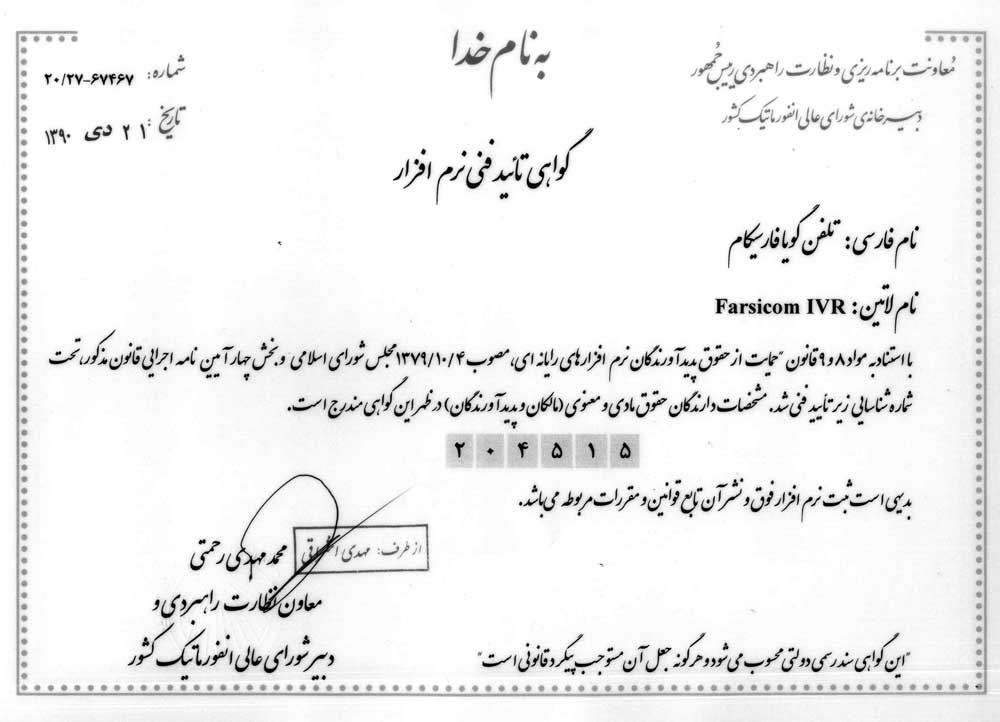 به نام خدا
معاونت برنامه ریزی و نظارت راهبردی رییس جمهور
دبیرخانه‌ی شورای عالی انفورماتیک کشور
شماره: ۲۰/۲۷-۶۷۴۶۷
تاریخ: ۲۱ دی ۱۳۹۰
گواهی تائید فنی نرم افزار
نام فارسی: تلفن گویا فارسیکام
نام لاتین: Farsicom IVR
با استناد به مواد ۸ و ۹ قانون "حمایت از حقوق پدیدآورندگان نرم افزارهای رایانه ای، مصوب ۱۳۷۹/۱۰/۴ مجلس شورای اسلامی و بخش چهار آیین نامه اجرایی قانون مذکور، تحت
شماره شناسایی زیر تأیید فنی شد. مشخصات دارندگان حقوق مادی و معنوی (مالکان و پدیدآورندگان) در ظهر این گواهی مندرج است.
۲ ۰ ۴ ۵ ۱ ۵
بدیهی است ثبت نرم افزار فوق و نشر آن تابع قوانین و مقررات مربوطه می باشد.
از طرف: مهدی
محمد مهدی رحمتی
معاون نظارت راهبردی و
دبیر شورای عالی انفورماتیک کشور
"این گواهی سند رسمی دولتی محسوب می شود و هرگونه جعل آن مستوجب پیگرد قانونی است"